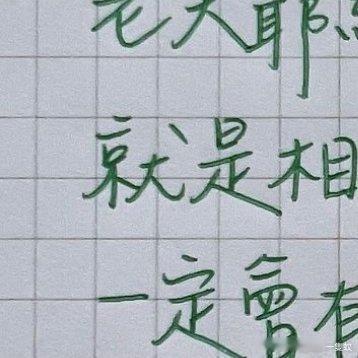 老天耶
就是相
一定會有